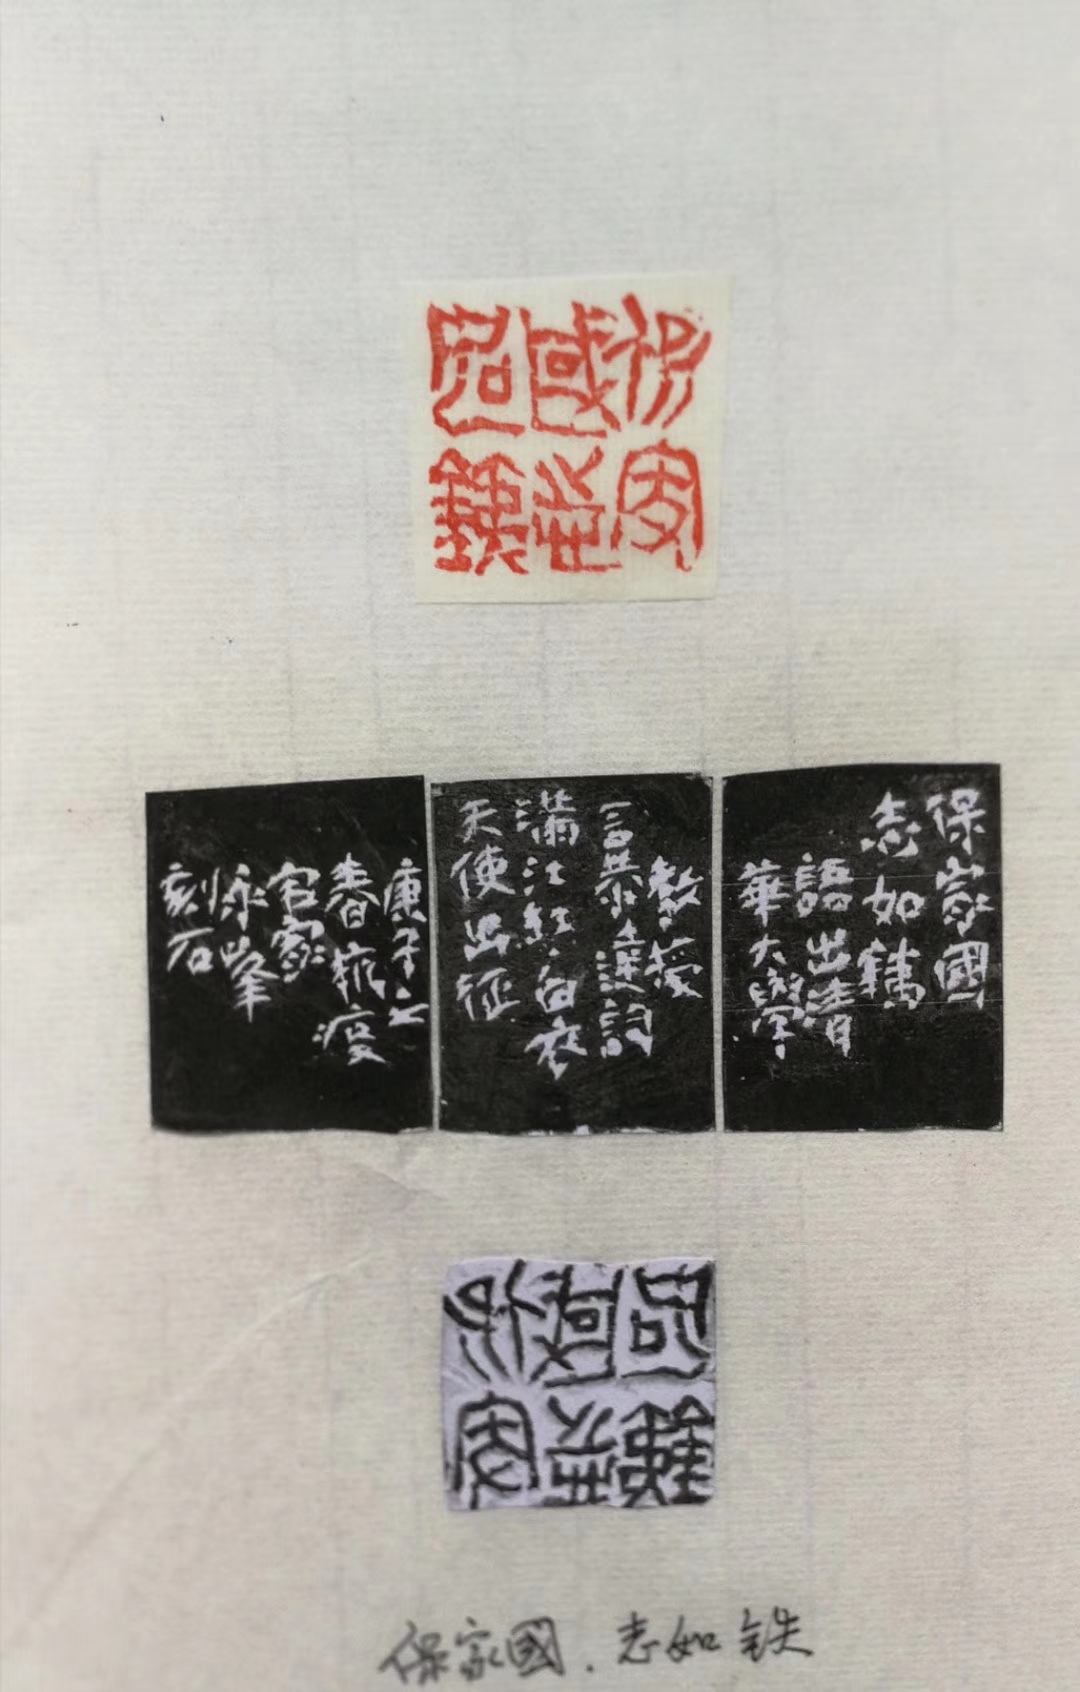 保家
國志
如鐵
保家國
志如鐵
語出清
華大學
教授
言恭達詞
滿江紅·白衣
天使出征
庚子之
春抗疫
官家
永峰
刻石
保家
國志
如鐵
保家國.志如铁